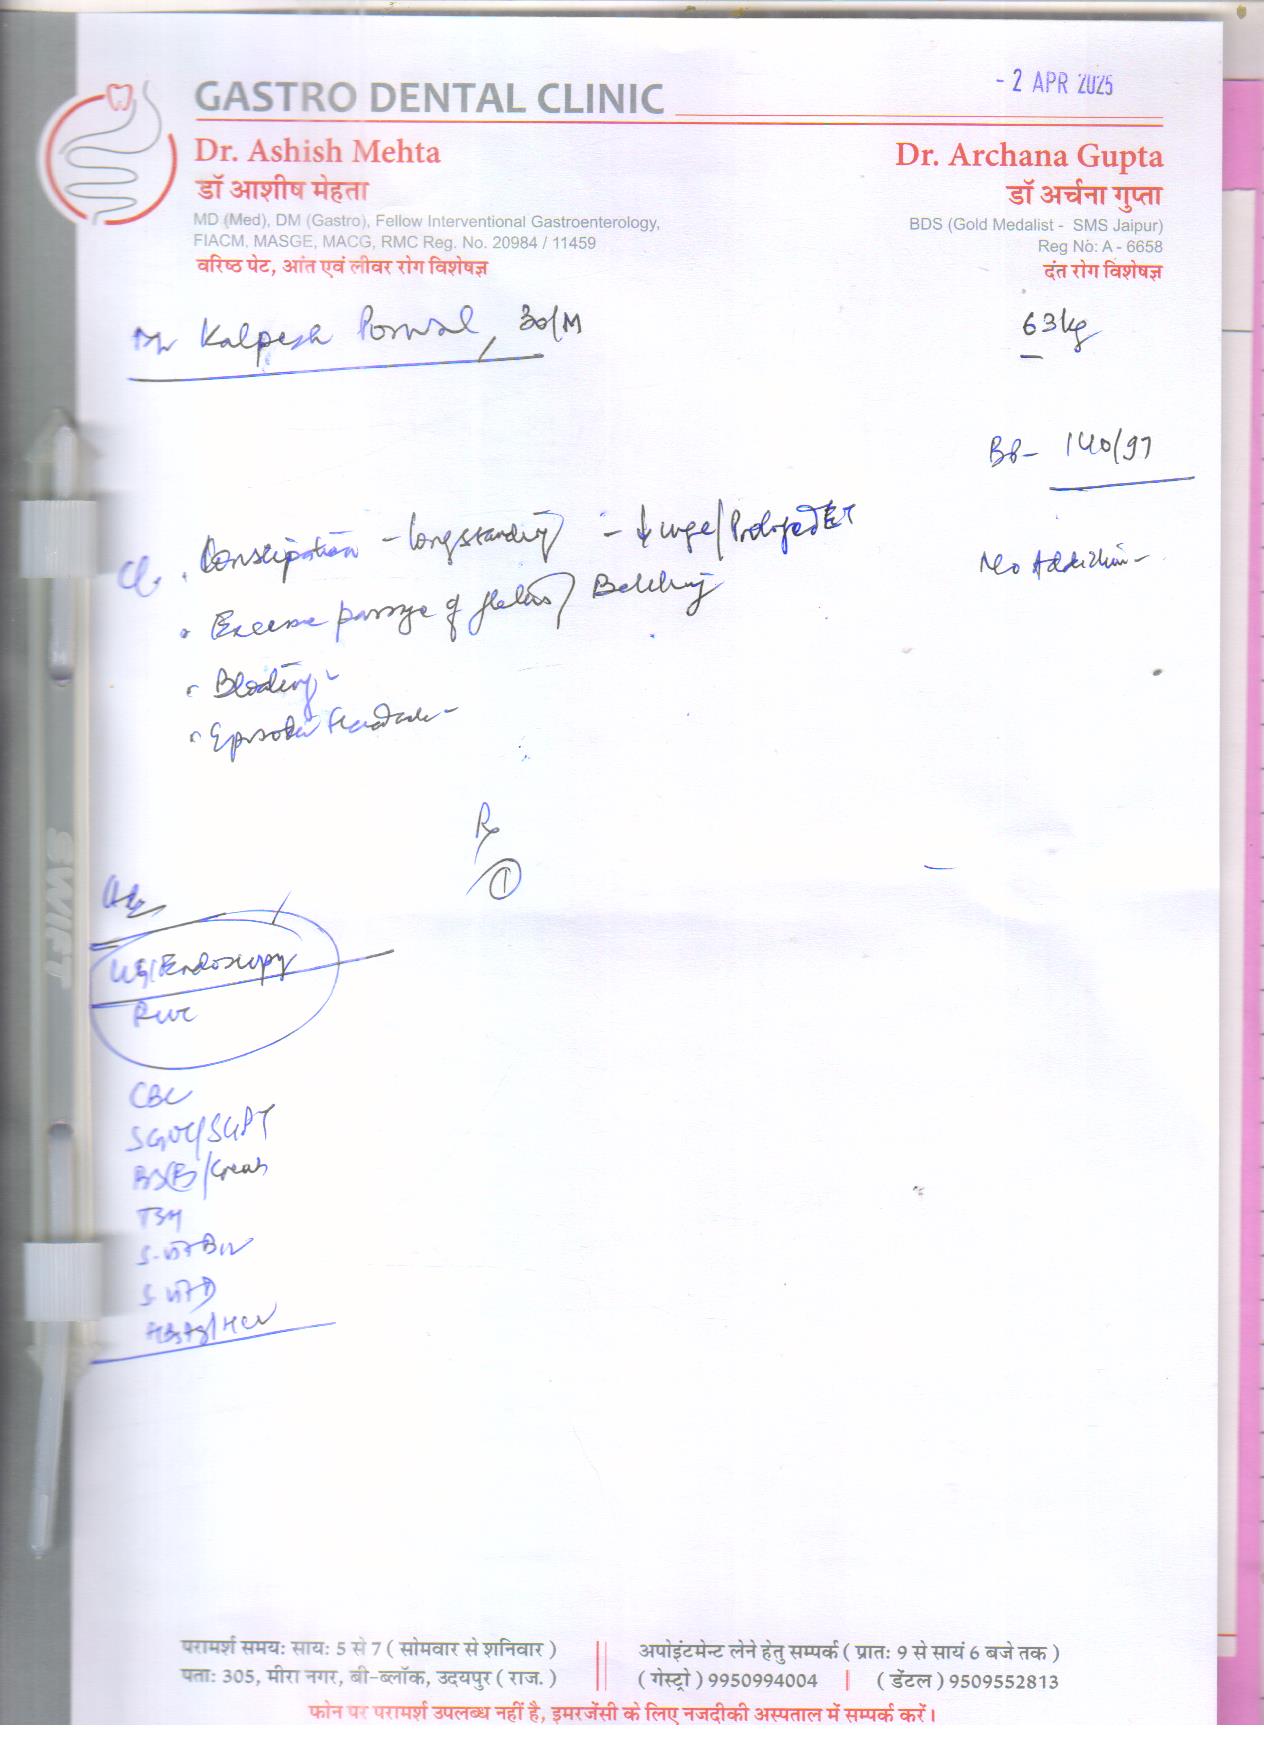 - 2 APR 2025
GASTRO DENTAL CLINIC
Dr. Ashish Mehta
डॉ आशीष मेहता
MD (Med), DM (Gastro), Fellow Interventional Gastroenterology,
FIACM, MASGE, MACG, RMC Reg. No. 20984 / 11459
वरिष्ठ पेट, आंत एवं लीवर रोग विशेषज्ञ
Dr. Archana Gupta
डॉ अर्चना गुप्ता
BDS (Gold Medalist - SMS Jaipur)
Reg No: A - 6658
दंत रोग विशेषज्ञ
Mr Kalpesh Porwal, 30/M
63kg
BP- 140/97
No Addiction-
Constipation - longstanding - ↓ urge/Prolonged
Excess passage of flatus/ Belching
Bloating-
Episodic Headache-
Rx
1
Adv
UGI Endoscopy
RUT
CBC
SGOT/SGPT
/Creat
TSH
S. Vit B12
S. Vit D
HBsAg/HCV
SWIFT
परामर्श समय: साय: 5 से 7 ( सोमवार से शनिवार )
पता: 305, मीरा नगर, बी-ब्लॉक, उदयपुर ( राज. )
अपोइंटमेन्ट लेने हेतु सम्पर्क ( प्रात: 9 से सायं 6 बजे तक )
( गेस्ट्रो ) 9950994004 | ( डेंटल ) 9509552813
फोन पर परामर्श उपलब्ध नहीं है, इमरजेंसी के लिए नजदीकी अस्पताल में सम्पर्क करें।